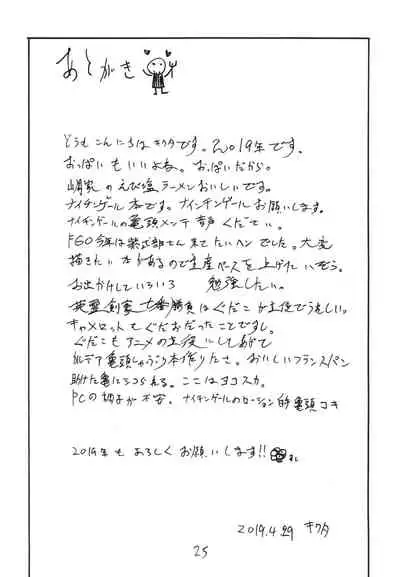 あとがき
どうもこんにちはキクタです。2019年です。
おっぱいもいいよね。おっぱいだから。
のえび塩ラーメンおいしいです。
ナイチンゲール本です。ナイチンゲールお願いします。
ナイチンゲールの亀頭メンテ音声ください。
FGO今年は紫式部さん来てたいへんでした。大変
描きたい本があるので生産ペースを上げたいぞう。
お出かけしていろいろ 勉強したい。
英霊剣豪七番勝負はぐだこが主役でうれしい。
キャメロットもぐだおだったことですし。
ぐだこもアニメの主役にしてあげて
カルデア亀頭しゅうり本作りたさ。おいしいフランスパン
助けた亀にシコられる。ここはヨコスカ。
PCの調子が不安。ナイチンゲールのローション的亀頭コキ
2019年もよろしくお願いします!!
2019.4.29 キクタ
25